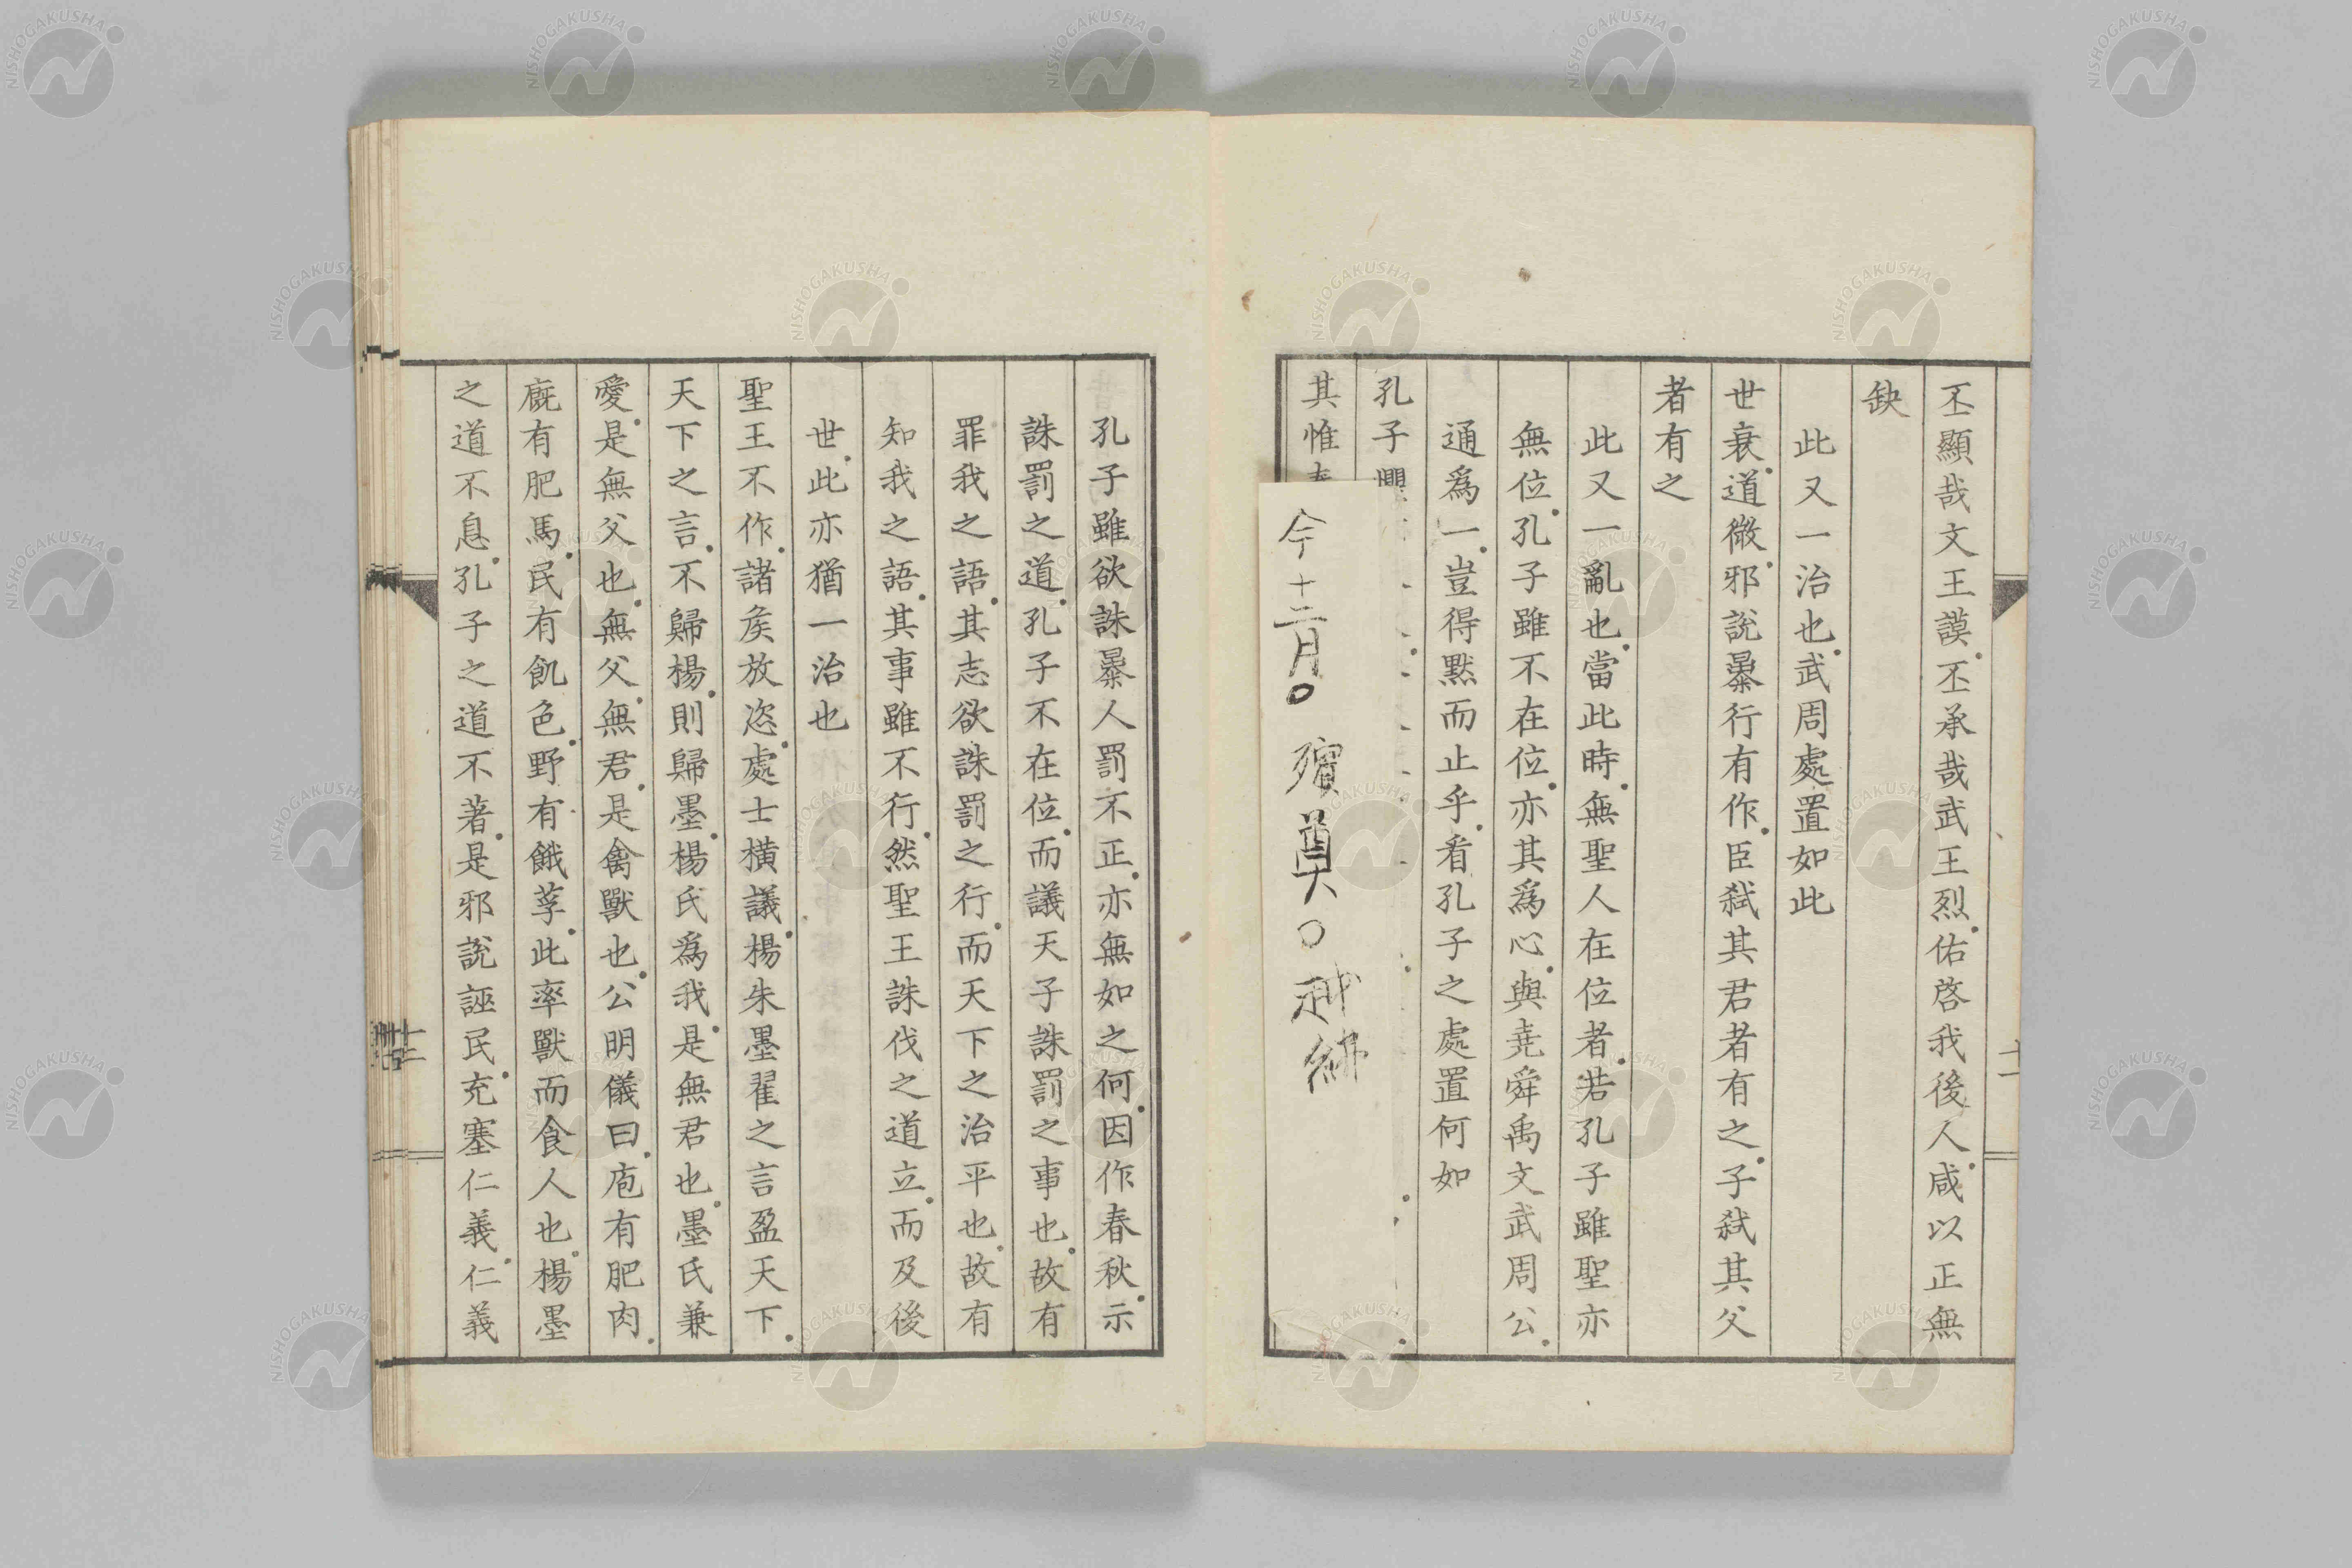 丕顯哉文王謨丕承哉武王烈佑啓我後人咸以正無
缺
此又一治也武周處置如此
世衰道微邪說暴行有作臣弑其君者有之子弑其父
者有之
此又一亂也當此時無聖人在位者若孔子雖聖亦
無位孔子雖不在位亦其爲心與堯舜禹文武周公
通爲一豈得默而止乎看孔子之處置何如
孔子
其惟
今十二月〇 殯奠〇
十一
孔子雖欲誅暴人罰不正亦無如之何因作春秋示
誅罰之道孔子不在位而議天子誅罰之事也故有
罪我之語其志欲誅罰之行而天下之治平也故有
知我之語其事雖不行然聖王誅伐之道立而及後
世此亦猶一治也
聖王不作諸矦放恣處士橫議楊朱墨翟之言盈天下
天下之言不歸楊則歸墨楊氏爲我是無君也墨氏兼
愛是無父也無父無君是禽獸也公明儀曰庖有肥肉
廐有肥馬民有飢色野有餓莩此率獸而食人也楊墨
之道不息孔子之道不著是邪說誣民充塞仁義仁義
十二
NISHOGAKUSHA